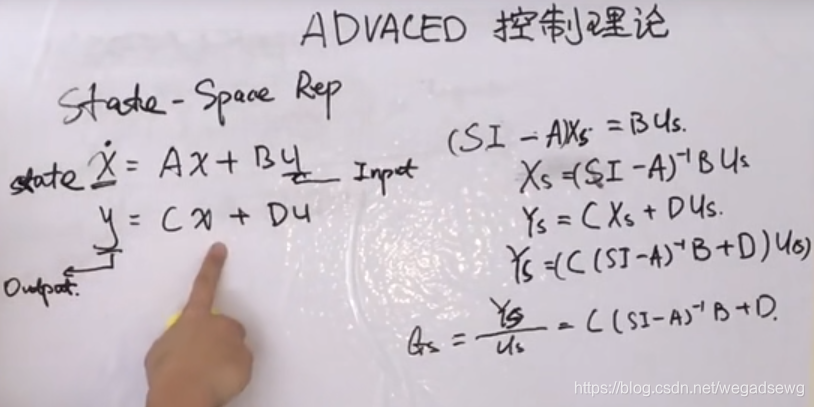 ADVACED 控制理论
State-Space Rep
state ẋ = Ax + Bu Input
y = Cx + Du
Output.
(SI - A)Xs = BUs.
Xs = (SI - A)⁻¹ B Us
Ys = CXs + DUs.
Ys = (C(SI-A)⁻¹B + D) U(s)
Gs = Ys / Us = C(SI-A)⁻¹B + D.
https://blog.csdn.net/wegadsewg